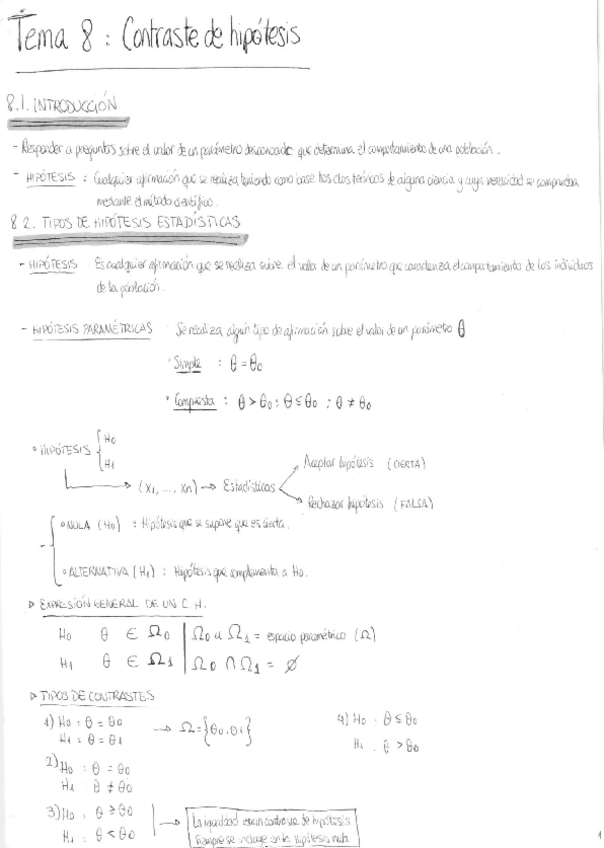 Tema 8 : Contraste de hipótesis
8.1. INTRODUCCIÓN
- Responder a preguntas sobre el valor de un parámetro desconocido que determina el comportamiento de una población.
- HIPÓTESIS : Cualquier afirmación que se realiza, teniendo como base los ctos teóricos de alguna ciencia y cuya veracidad se comprueba
mediante el método científico.
8.2. TIPOS DE HIPÓTESIS ESTADÍSTICAS
- HIPÓTESIS Es cualquier afirmación que se realiza sobre el valor de un parámetro que caracteriza el comportamiento de los individuos
de la población.
- HIPÓTESIS PARAMÉTRICAS Se realiza algún tipo de afirmación sobre el valor de un parámetro θ
· Simple : θ = θ0
· Compuesta : θ > θ0 ; θ ≤ θ0 ; θ ≠ θ0
• HIPÓTESIS { H0
H1
(X1, ..., Xn) → Estadísticos
Aceptar hipótesis (CIERTA)
Rechazar hipótesis (FALSA)
• NULA (H0) : Hipótesis que se supone que es cierta.
• ALTERNATIVA (H1) : Hipótesis que complementa a H0.
▷ EXPRESIÓN GENERAL DE UN C.H.
H0 θ ∈ Ω0 | Ω0 ∪ Ω1 = espacio paramétrico (Ω)
H1 θ ∈ Ω1 | Ω0 ∩ Ω1 = ∅
▷ TIPOS DE CONTRASTES
1) H0 : θ = θ0
H1 : θ = θ1
→ Ω = {θ0, θ1}
4) H0 : θ ≤ θ0
H1 : θ > θ0
2) H0 : θ = θ0
H1 : θ ≠ θ0
3) H0 : θ ≥ θ0
H1 : θ < θ0
→ La igualdad en un contraste de hipótesis
siempre se incluye en la hipótesis nula